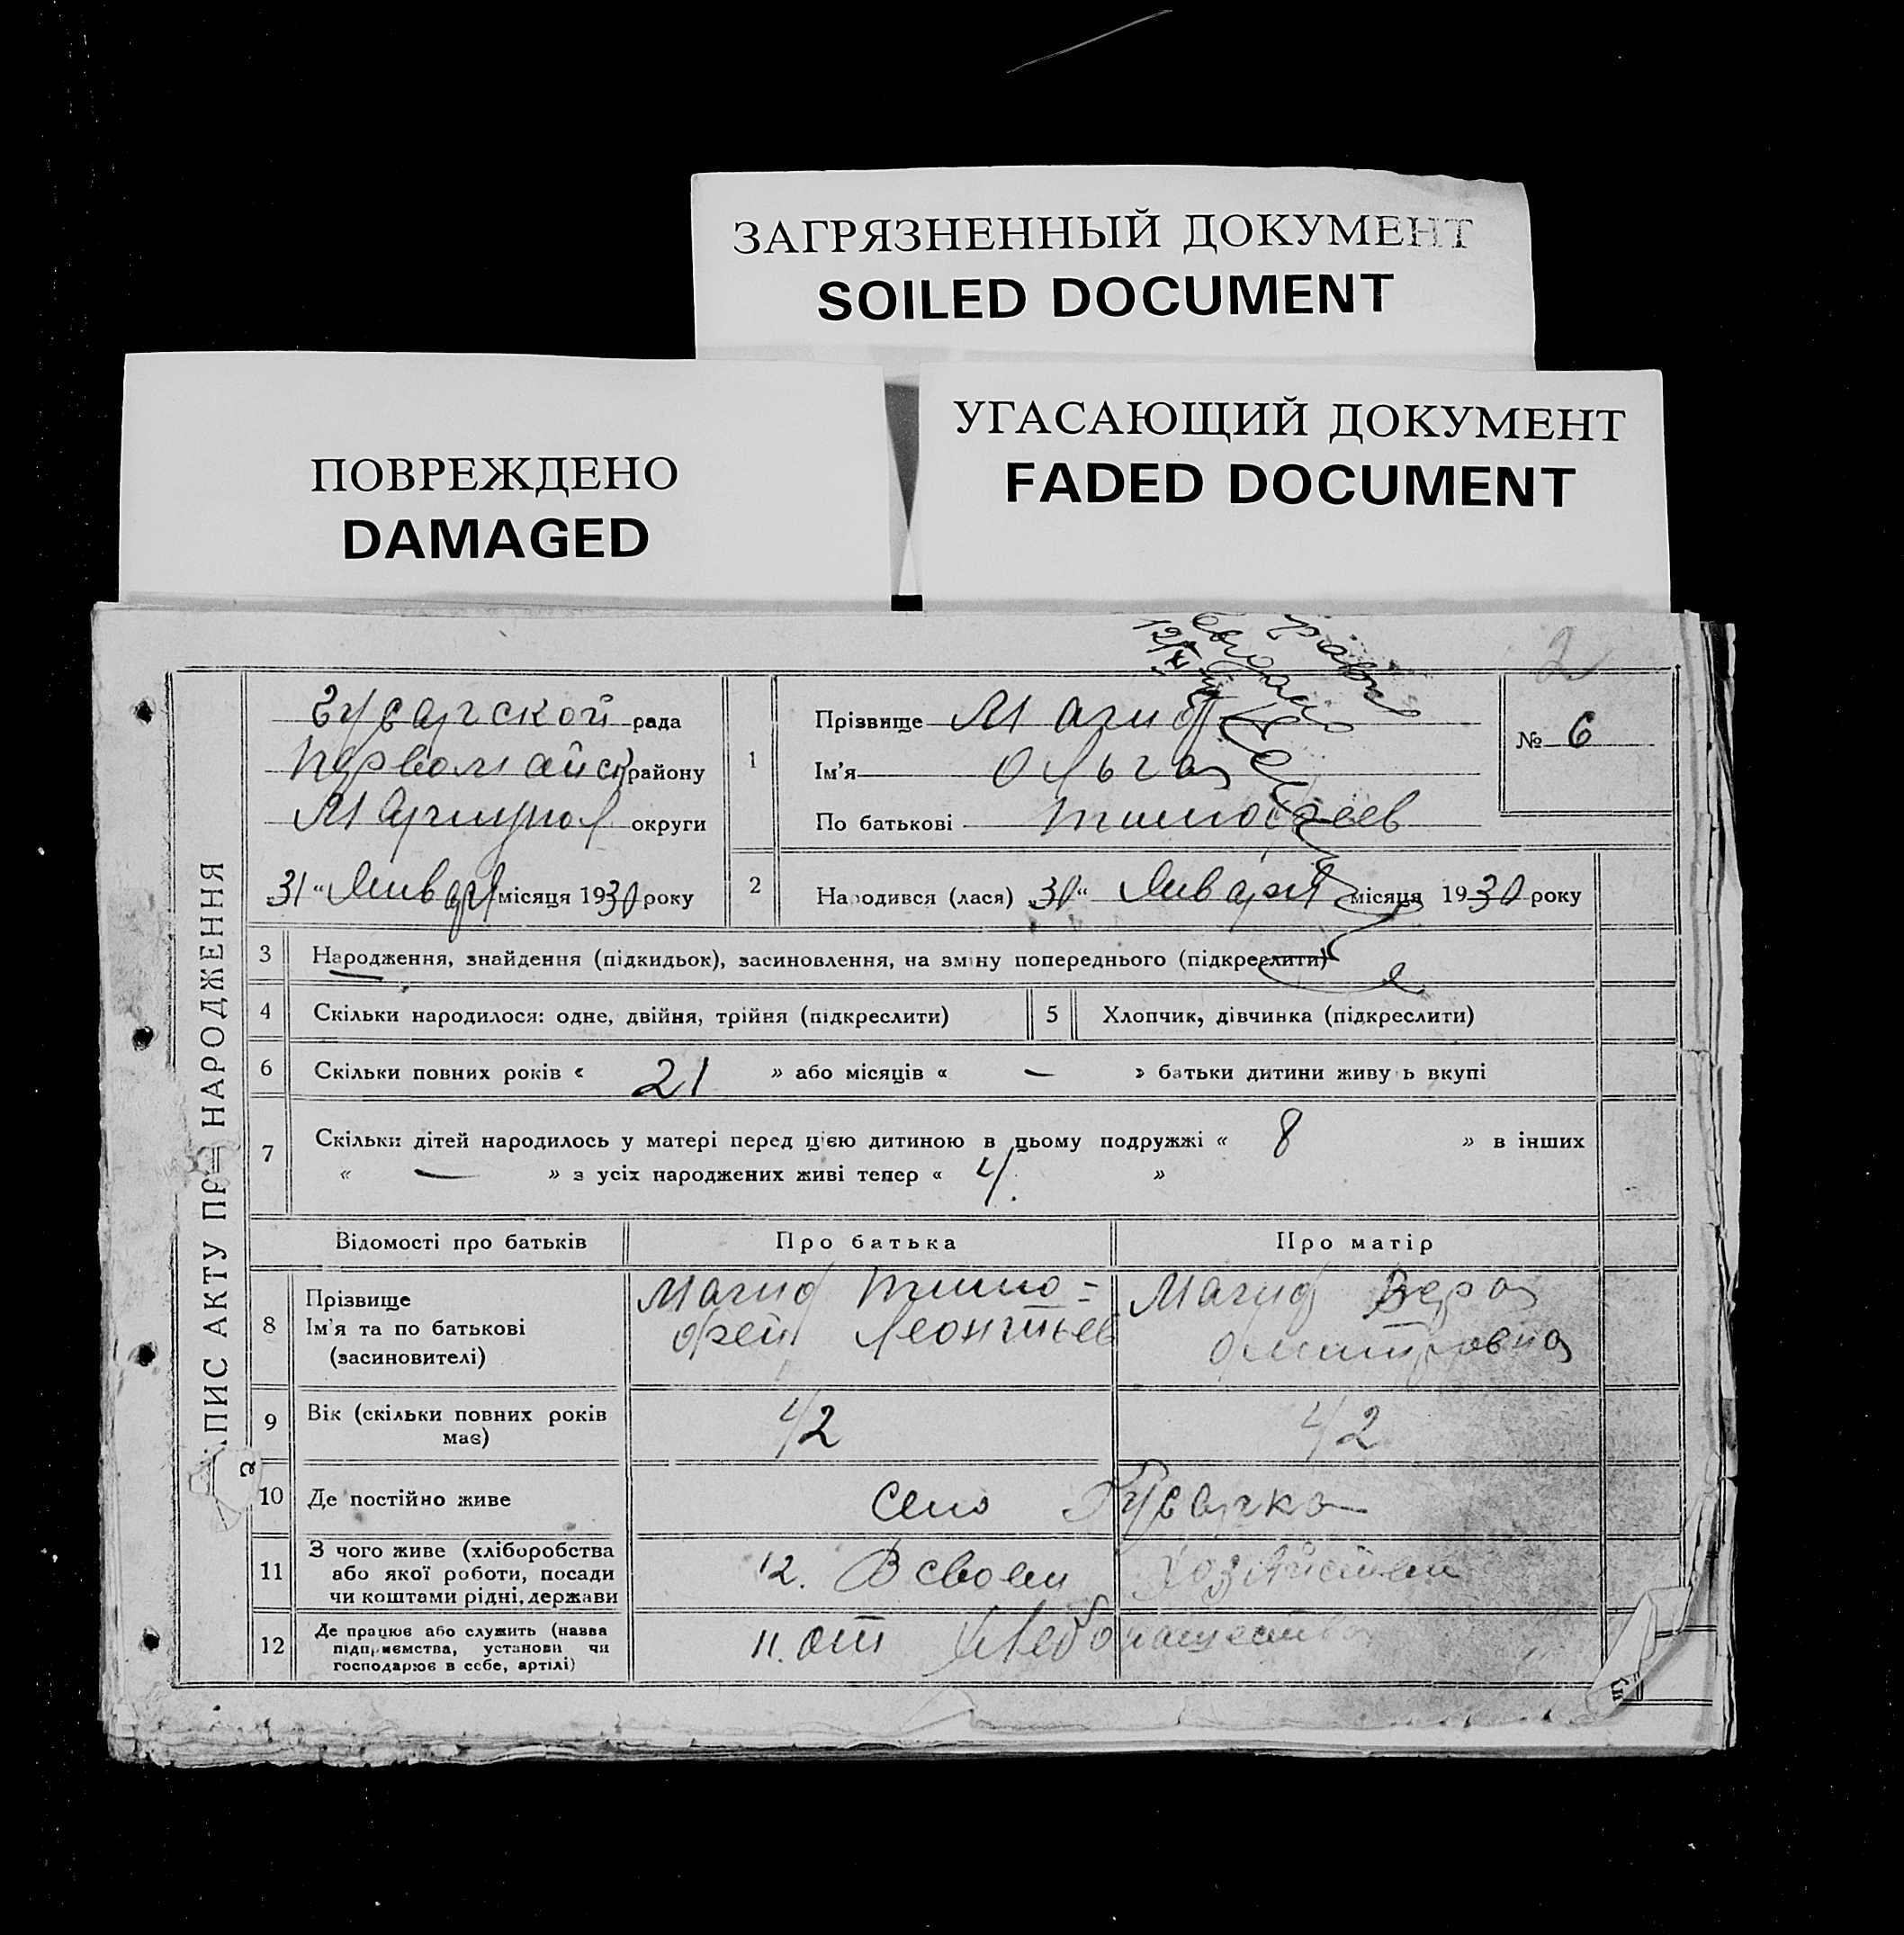 ЗАГРЯЗНЕННЫЙ ДОКУМЕНТ
SOILED DOCUMENT
ПОВРЕЖДЕНО
DAMAGED
УГАСАЮЩИЙ ДОКУМЕНТ
FADED DOCUMENT
2
ПИС АКТУ ПР НАРОДЖЕННЯ
рада
району
Мариупол округи
31 " Января місяця 1930 року
1
Прізвище Магид
Ім'я Ольга
По батькові Тимофеев
№ 6
2
Народився (лася) 30 " Января місяця 1930 року
3 Народження, знайдення (підкидьок), засиновлення, на зміну попереднього (підкреслити)
4 Скільки народилося: одне, двійня, трійня (підкреслити)
5 Хлопчик, дівчинка (підкреслити)
6 Скільки повних років « 21 » або місяців « — » батьки дитини живу ь вкупі
7 Скільки дітей народилось у матері перед цією дитиною в цьому подружжі « 8 » в інших
« — » з усіх народжених живі тепер « 4. »
Відомості про батьків Про батька Про матір
8 Прізвище
Ім'я та по батькові
(засиновителі)
Магид Тимо=
фей Леонтьев
Магид Вера
Дмитровна
9 Вік (скільки повних років
має)
42 42
10 Де постійно живе Село
11 З чого живе (хліборобства
або якої роботи, посади
чи коштами рідні, держави
12. В своем хозяйстве
12 Де працює або служить (назва
підприємства, установи чи
господарює в себе, артілі)
11. от хлебопашества